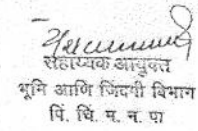 सहाय्यक आयुक्त
भूमि आणि जिंदगी विभाग
पिं. चिं. म. न. पा